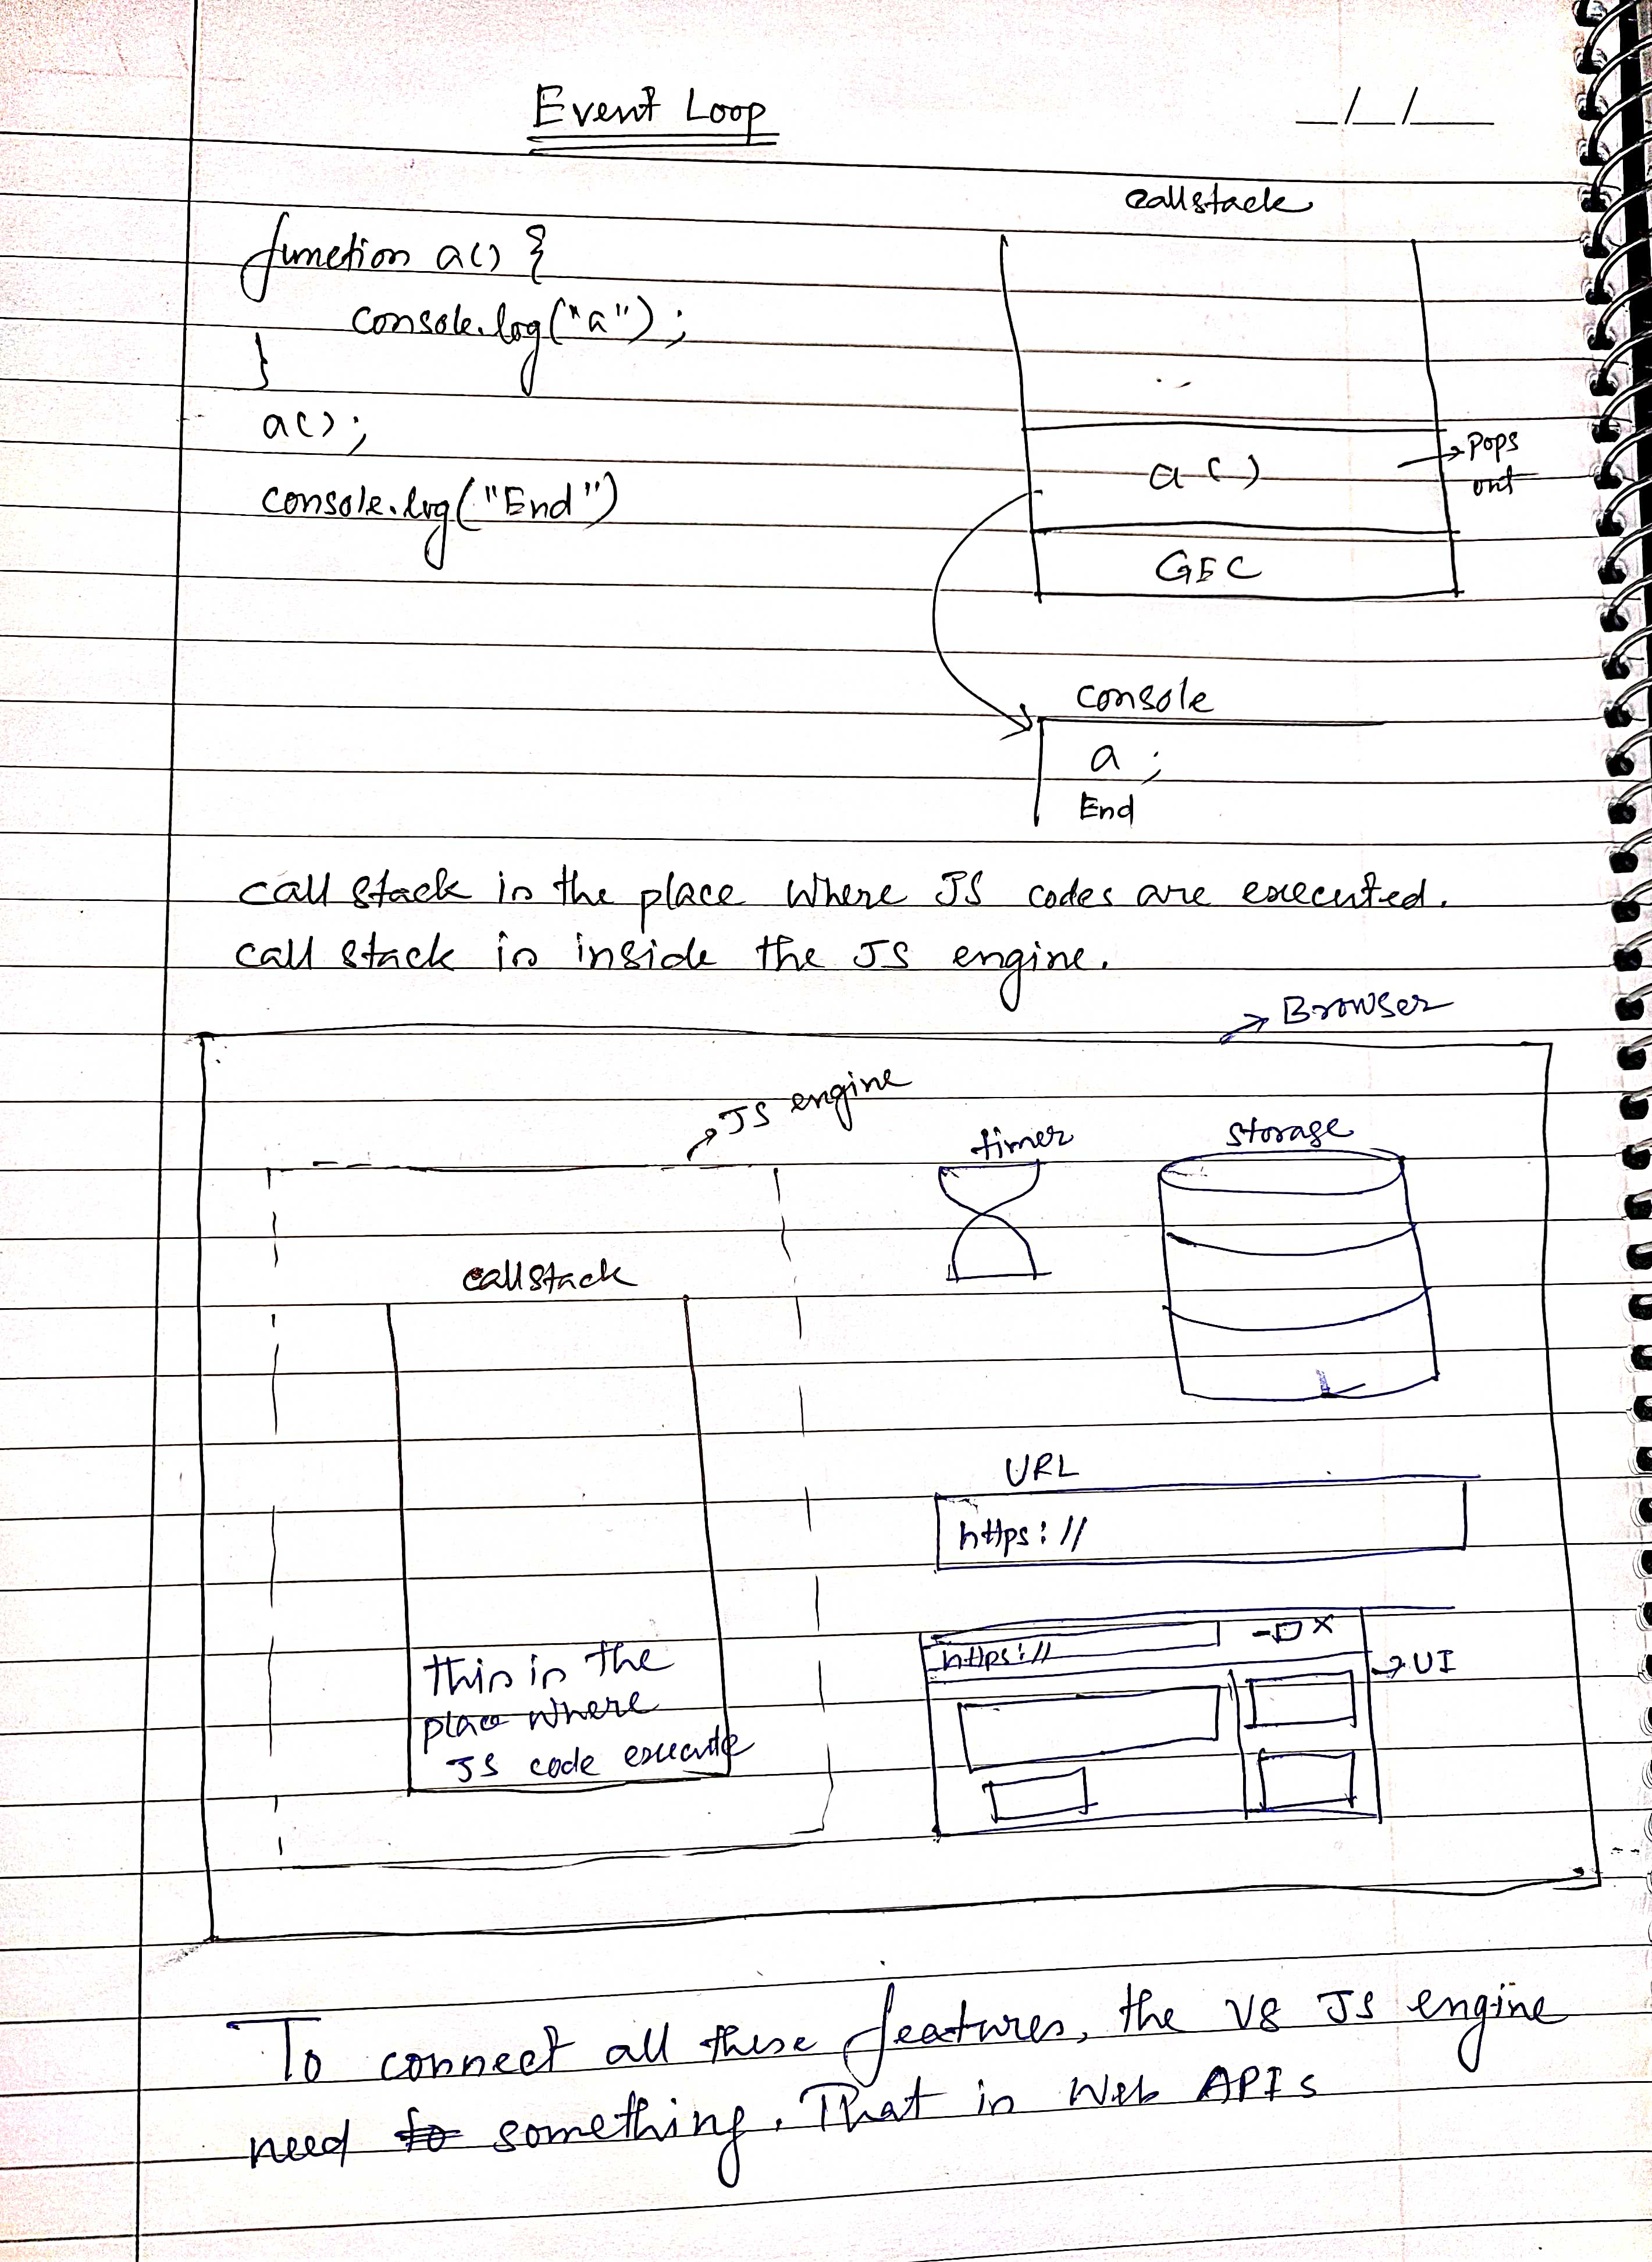 Event Loop
_/_/__
function a() {
console.log("a");
}
a();
console.log("End")
callstack
a()
→ Pops
out
GEC
console
a ;
End
call stack is the place where JS codes are executed.
call stack is inside the JS engine.
→ Browser
→ JS engine
timer
storage
callstack
this is the
place where
JS code execute
URL
https://
https://
- □ X
→ UI
To connect all these features, the V8 JS engine
need to something. That is Web APIs